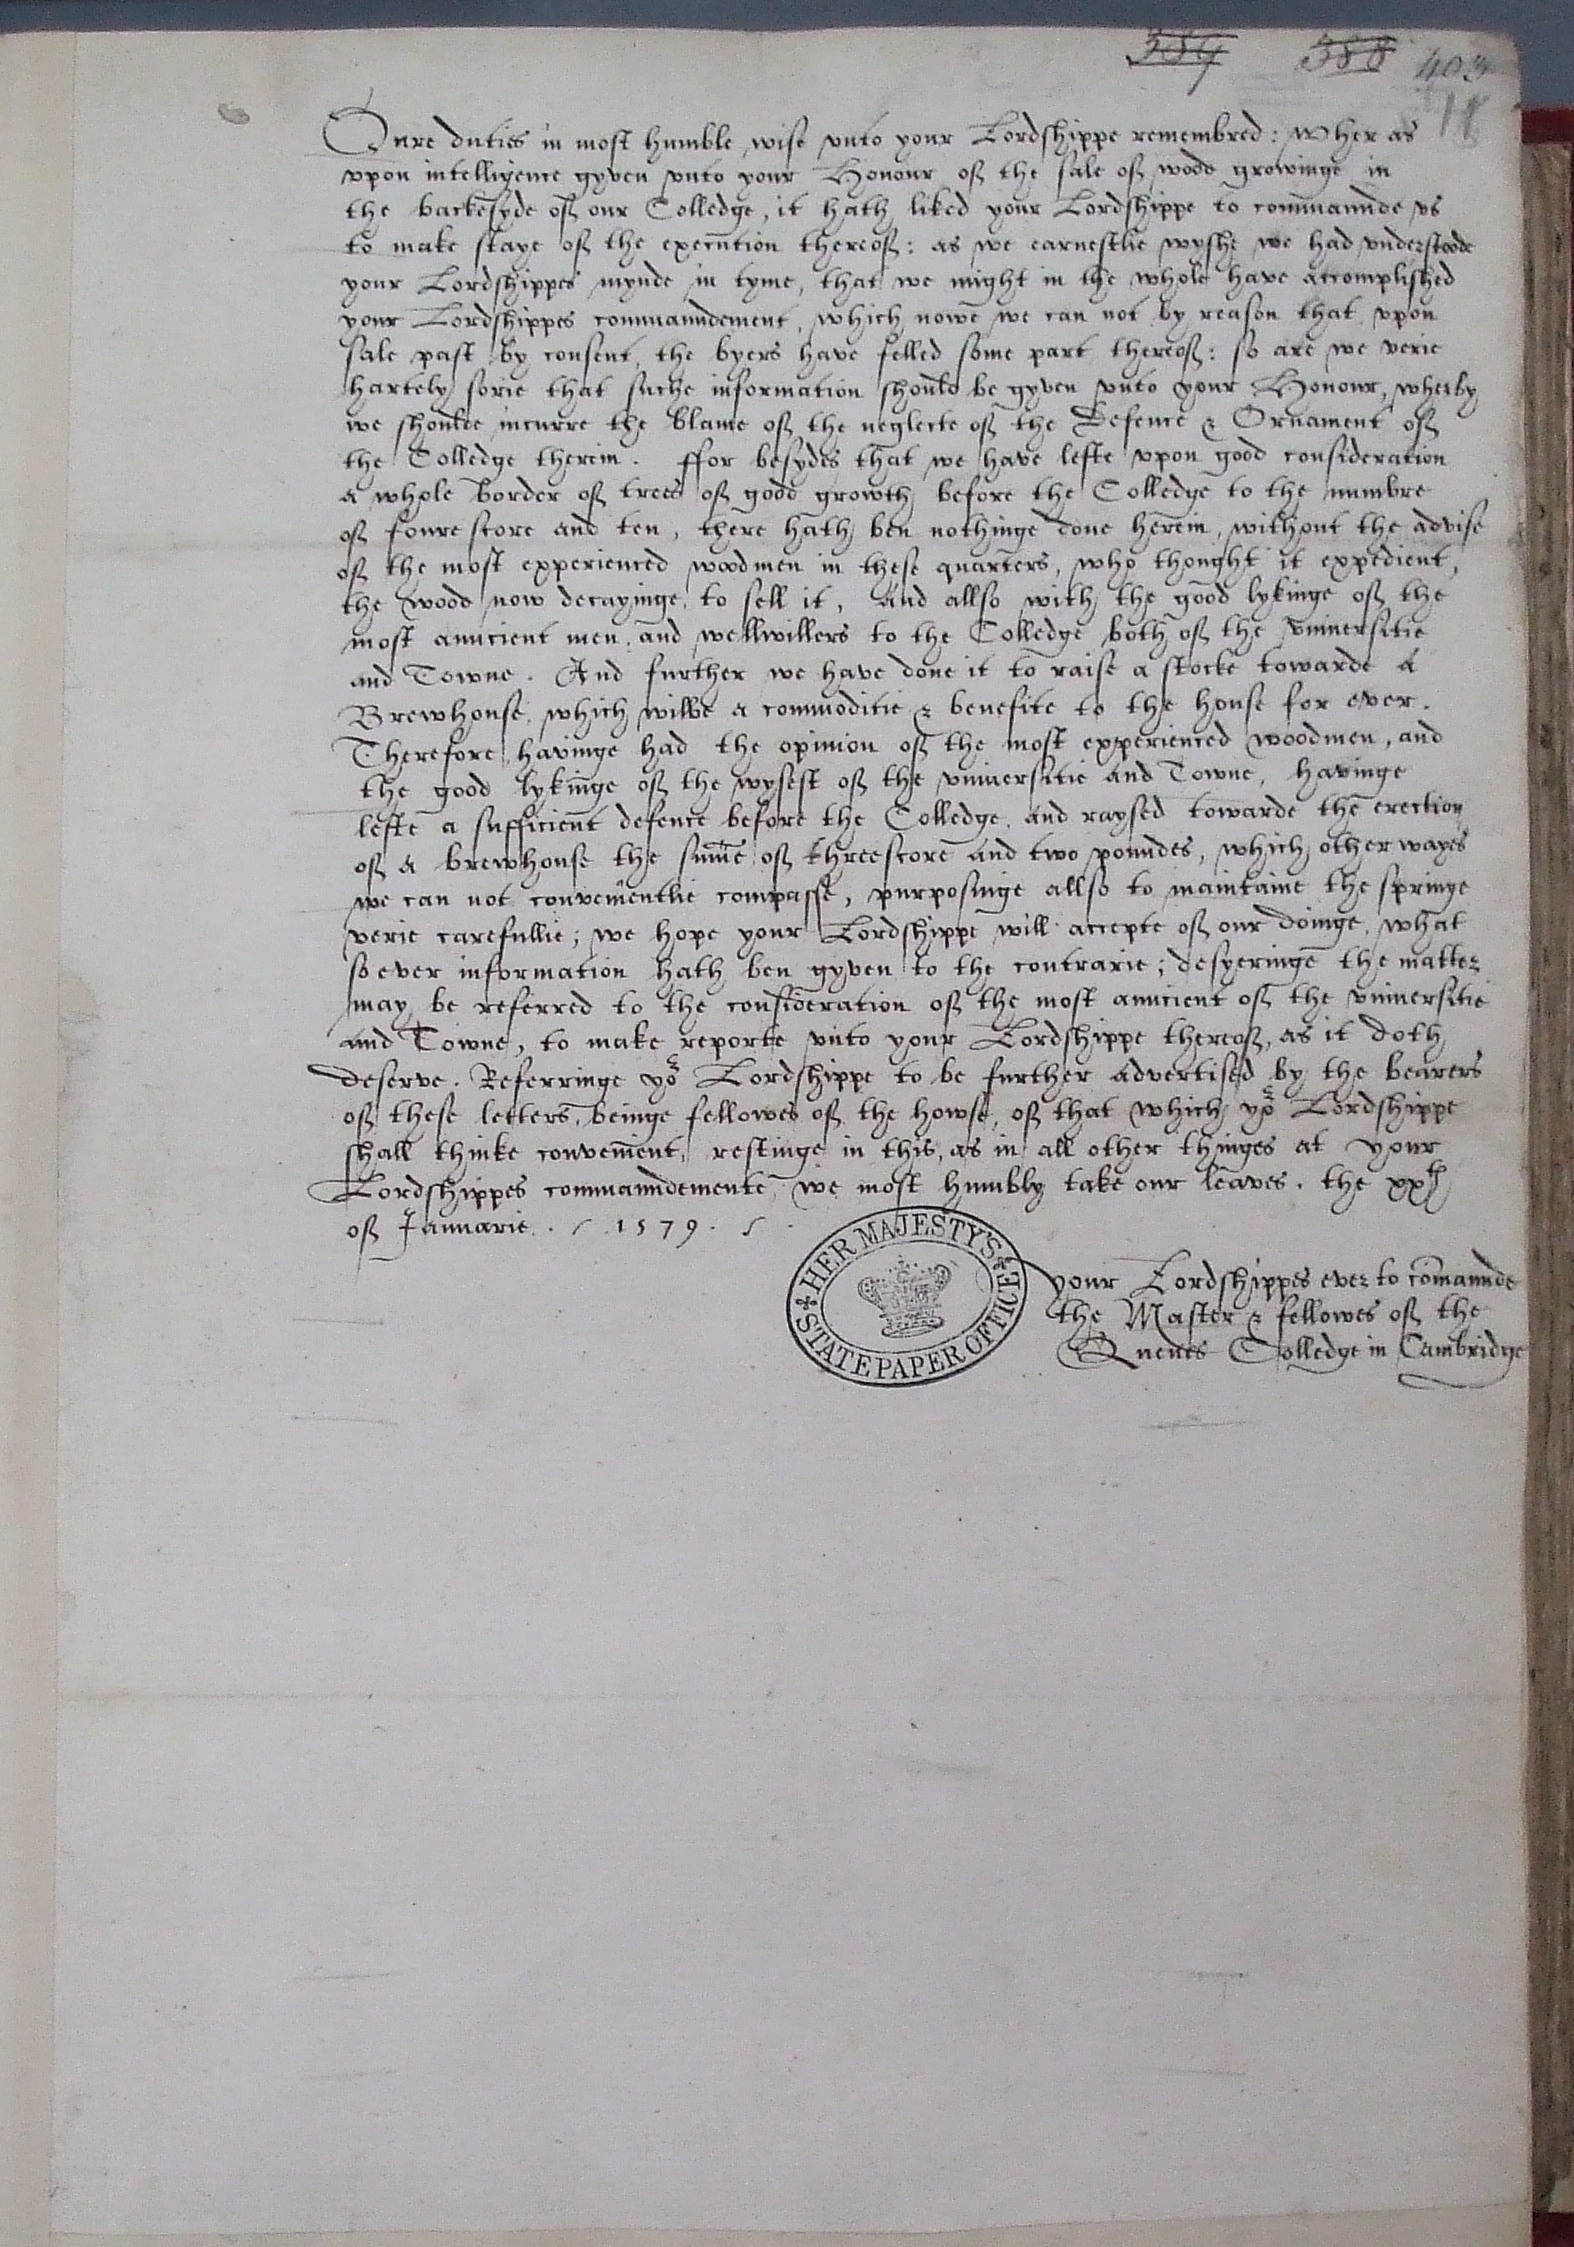 389 388 403
18
Oure duties in most humble wise vnto your Lordshippe remembred: Wher as
vpon intelligence gyven vnto your Honour of the sale of wode growinge in
the backesyde of our Colledge, it hath liked your Lordshippe to commaunde vs
to make staye of the execution thereof: as we earnestlie wyshe we had vnderstoode
your Lordshippes mynde in tyme, that we might in the whole have accomplished
your Lordshippes commaundement, which nowe we can not by reason that vpon
sale past by consent, the byers have felled some part thereof: so are we verie
hartely sorie that suche information should be gyven vnto your Honour, wherby
we shoulde incurre the blame of the neglecte of the Defence & Ornament of
the Colledge therein. ffor besydes that we have lefte vpon good consideration
a whole border of trees of good growth before the Colledge to the numbre
of foure score and ten, there hath ben nothinge done herein, without the advise
of the most experienced woodmen in these quarters, who thought it expedient,
the wood now decayinge, to sell it, And allso with the good lykinge of the
most auncient men, and wellwillers to the Colledge both of the vniversitie
and Towne. And further we have done it to raise a stocke towarde a
Brewhouse, which wilbe a commoditie & benefite to the house for ever.
Therefore havinge had the opinion of the most experienced woodmen, and
the good lykinge of the wysest of the vniuersitie and Towne, havinge
lefte a sufficient defence before the Colledge, and raysed towarde the erection
of a brewhouse the summe of threescore and two poundes, which other wayes
we can not convenientlie compasse, purposinge allso to maintaine the springe
verie carefullie; we hope your Lordshippe will accepte of our doinge, what
so ever information hath ben gyven to the contrarie; desyeringe the matter
may be referred to the consideration of the most auncient of the vniuersitie
and Towne, to make reporte vnto your Lordshippe thereof, as it doth
deserve. Referringe yor Lordshippe to be further advertised by the bearers
of these letters, beinge fellowes of the howse, of that which yor Lordshippe
shall thinke convenient, restinge in this, as in all other thinges at your
Lordshippes commaundemente, we most humbly take our leaves. the xxth
of Januarie. 1579.
HER MAJESTY'S STATE PAPER OFFICE
your Lordshippes ever to cõmaunde
the Master & fellowes of the
Quenes Colledge in Cambridge